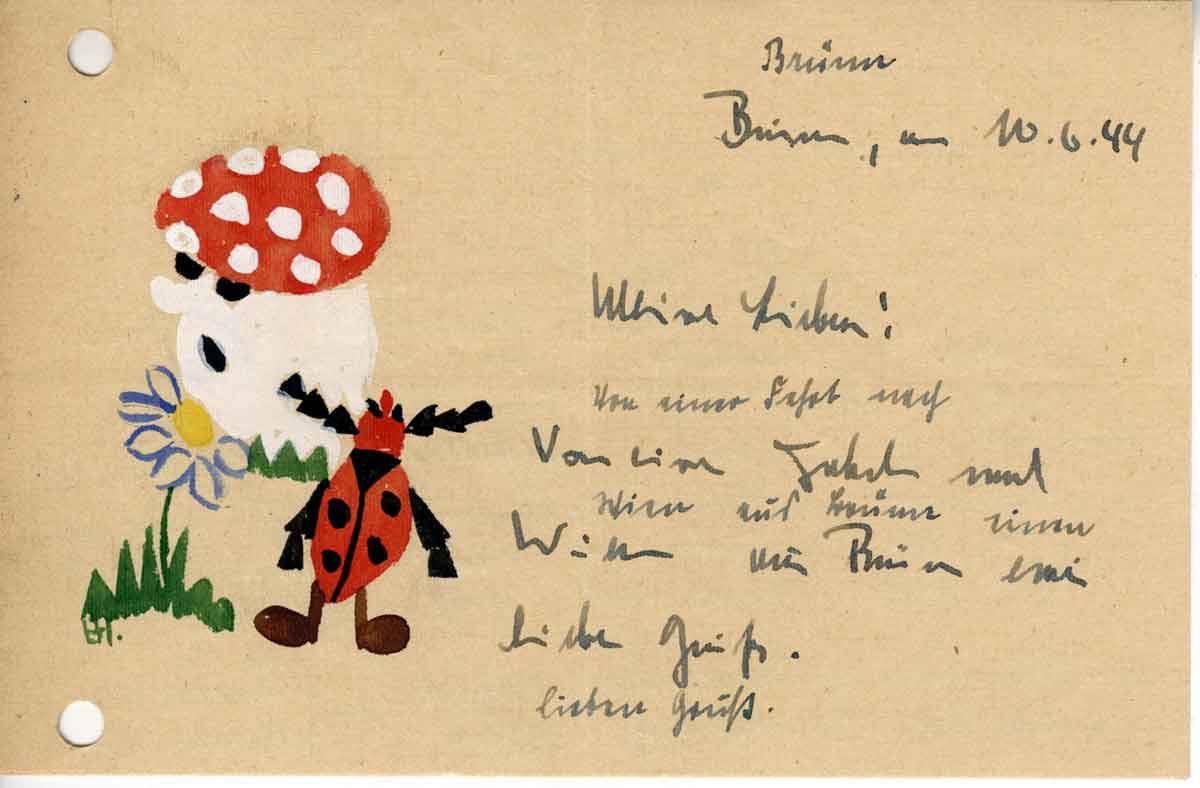 Brünn
Brünn, am 10.6.44
Meine Lieben!
Von einer Fahrt nach
Von einer Fahrt nach
Wien aus Brünn einen
Wien aus Brünn einen
lieben Gruß.
lieben Gruß.
EH.